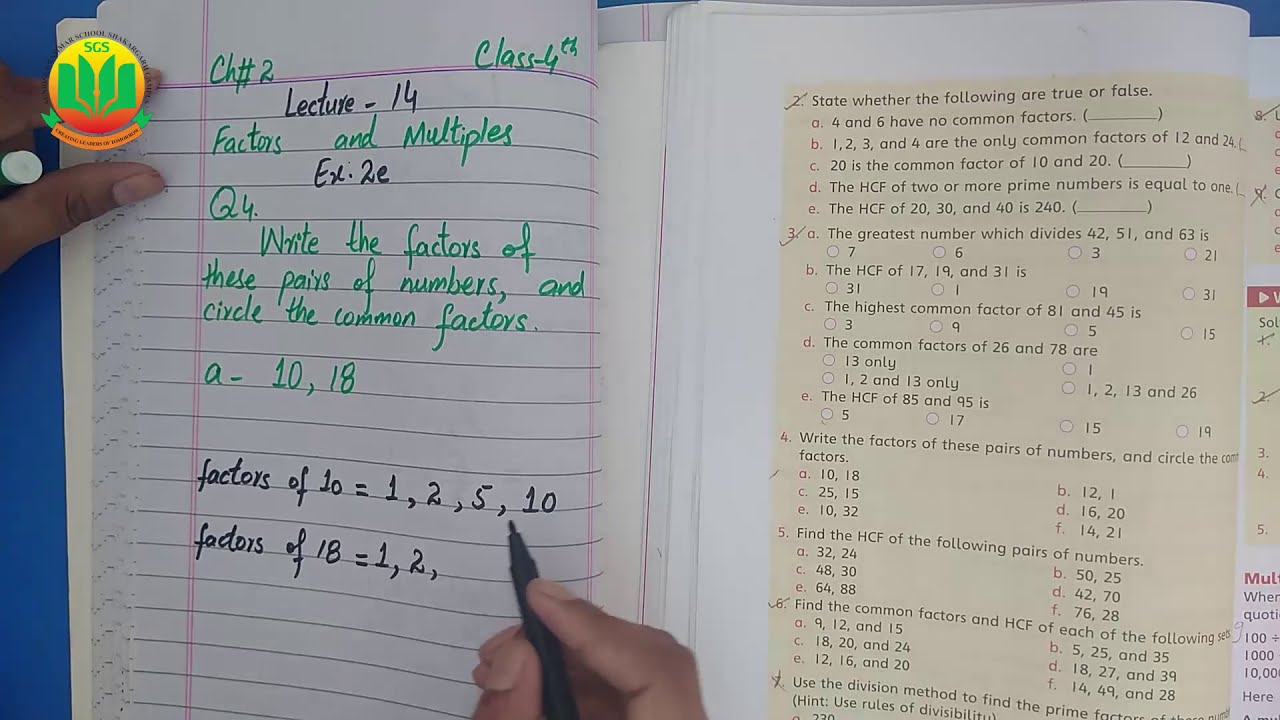 SGS
CREATING LEADERS OF TOMORROW
Ch# 2
Class-4th
Lecture - 14
Factors and Multiples
Ex: 2e
Q4.
Write the factors of
these pairs of numbers, and
circle the common factors.
a - 10, 18
factors of 10 = 1, 2, 5, 10
factors of 18 = 1, 2,
2. State whether the following are true or false.
a. 4 and 6 have no common factors. (________)
b. 1, 2, 3, and 4 are the only common factors of 12 and 24. (
c. 20 is the common factor of 10 and 20. (________)
d. The HCF of two or more prime numbers is equal to one. (
e. The HCF of 20, 30, and 40 is 240. (________)
3. a. The greatest number which divides 42, 51, and 63 is
7 6 3 21
b. The HCF of 17, 19, and 31 is
31 1 19 31
c. The highest common factor of 81 and 45 is
3 9 5 15
d. The common factors of 26 and 78 are
13 only 1
1, 2 and 13 only 1, 2, 13 and 26
e. The HCF of 85 and 95 is
5 17 15 19
4. Write the factors of these pairs of numbers, and circle the com
factors.
a. 10, 18 b. 12, 1
c. 25, 15 d. 16, 20
e. 10, 32 f. 14, 21
5. Find the HCF of the following pairs of numbers.
a. 32, 24 b. 50, 25
c. 48, 30 d. 42, 70
e. 64, 88 f. 76, 28
6. Find the common factors and HCF of each of the following sets
a. 9, 12, and 15 b. 5, 25, and 35
c. 18, 20, and 24 d. 18, 27, and 39
e. 12, 16, and 20 f. 14, 49, and 28
Use the division method to find the prime factors of these
(Hint: Use rules of divisibility)
a. 230
Sol
2.
3.
4.
5.
Mul
When
quoti
100 ÷
1000
10,00
Here